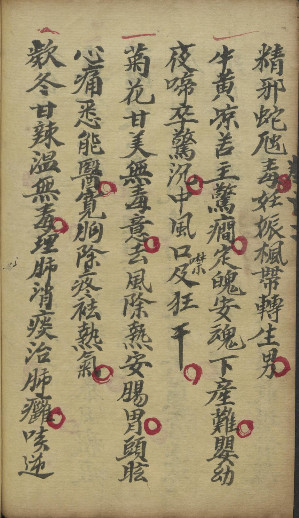 精邪蛇虺毒妊娠楓帶轉生男
牛黃凉苦主驚癇定魄安魂下產難嬰幼
夜啼卒驚沉中風口噤及狂干
菊花甘美無毒意去風除熱安腸胃頭眩
心痛悉能醫寬胸除痰祛熱氣
欵冬甘辣溫無毒理肺消痰治肺癰咳逆